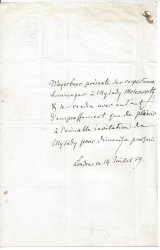 Meyerbeer présente ses respectueux
hommages à Mylady
& se rendra avec autant
d'empressement que de plaisir
à l'aimable invitation de
Mylady pour dimanche prochain.
Londres ce 14 Juillet 59.